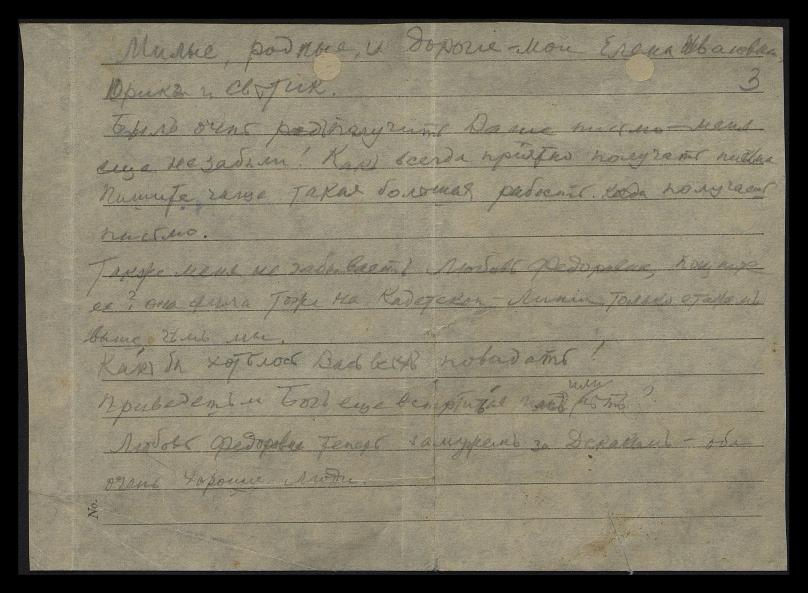 Милые, родные, и дорогие мои Елена Ивановна
3
Юрикъ и Светик.
Былъ очень радъ получить Ваше письмо — меня
еще не забыли! Какъ всегда прiятно получать письма
Пишите чаще такая большая радость когда получаешь
письмо.
Также меня не забываетъ Любовь Федоровна, помните
ее? она жила тоже на Кадетской Линiи, только этажемъ
выше, чѣмъ мы.
Какъ бы хотѣлось Васъ всѣхъ повидать!
Приведетъ ли Богъ еще встрѣтиться или нѣтъ?
Любовь Федоровна теперь замужемъ за Деканомъ — оба
очень хорошие люди.
No.